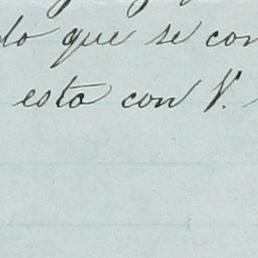 do que se con
esta con V.